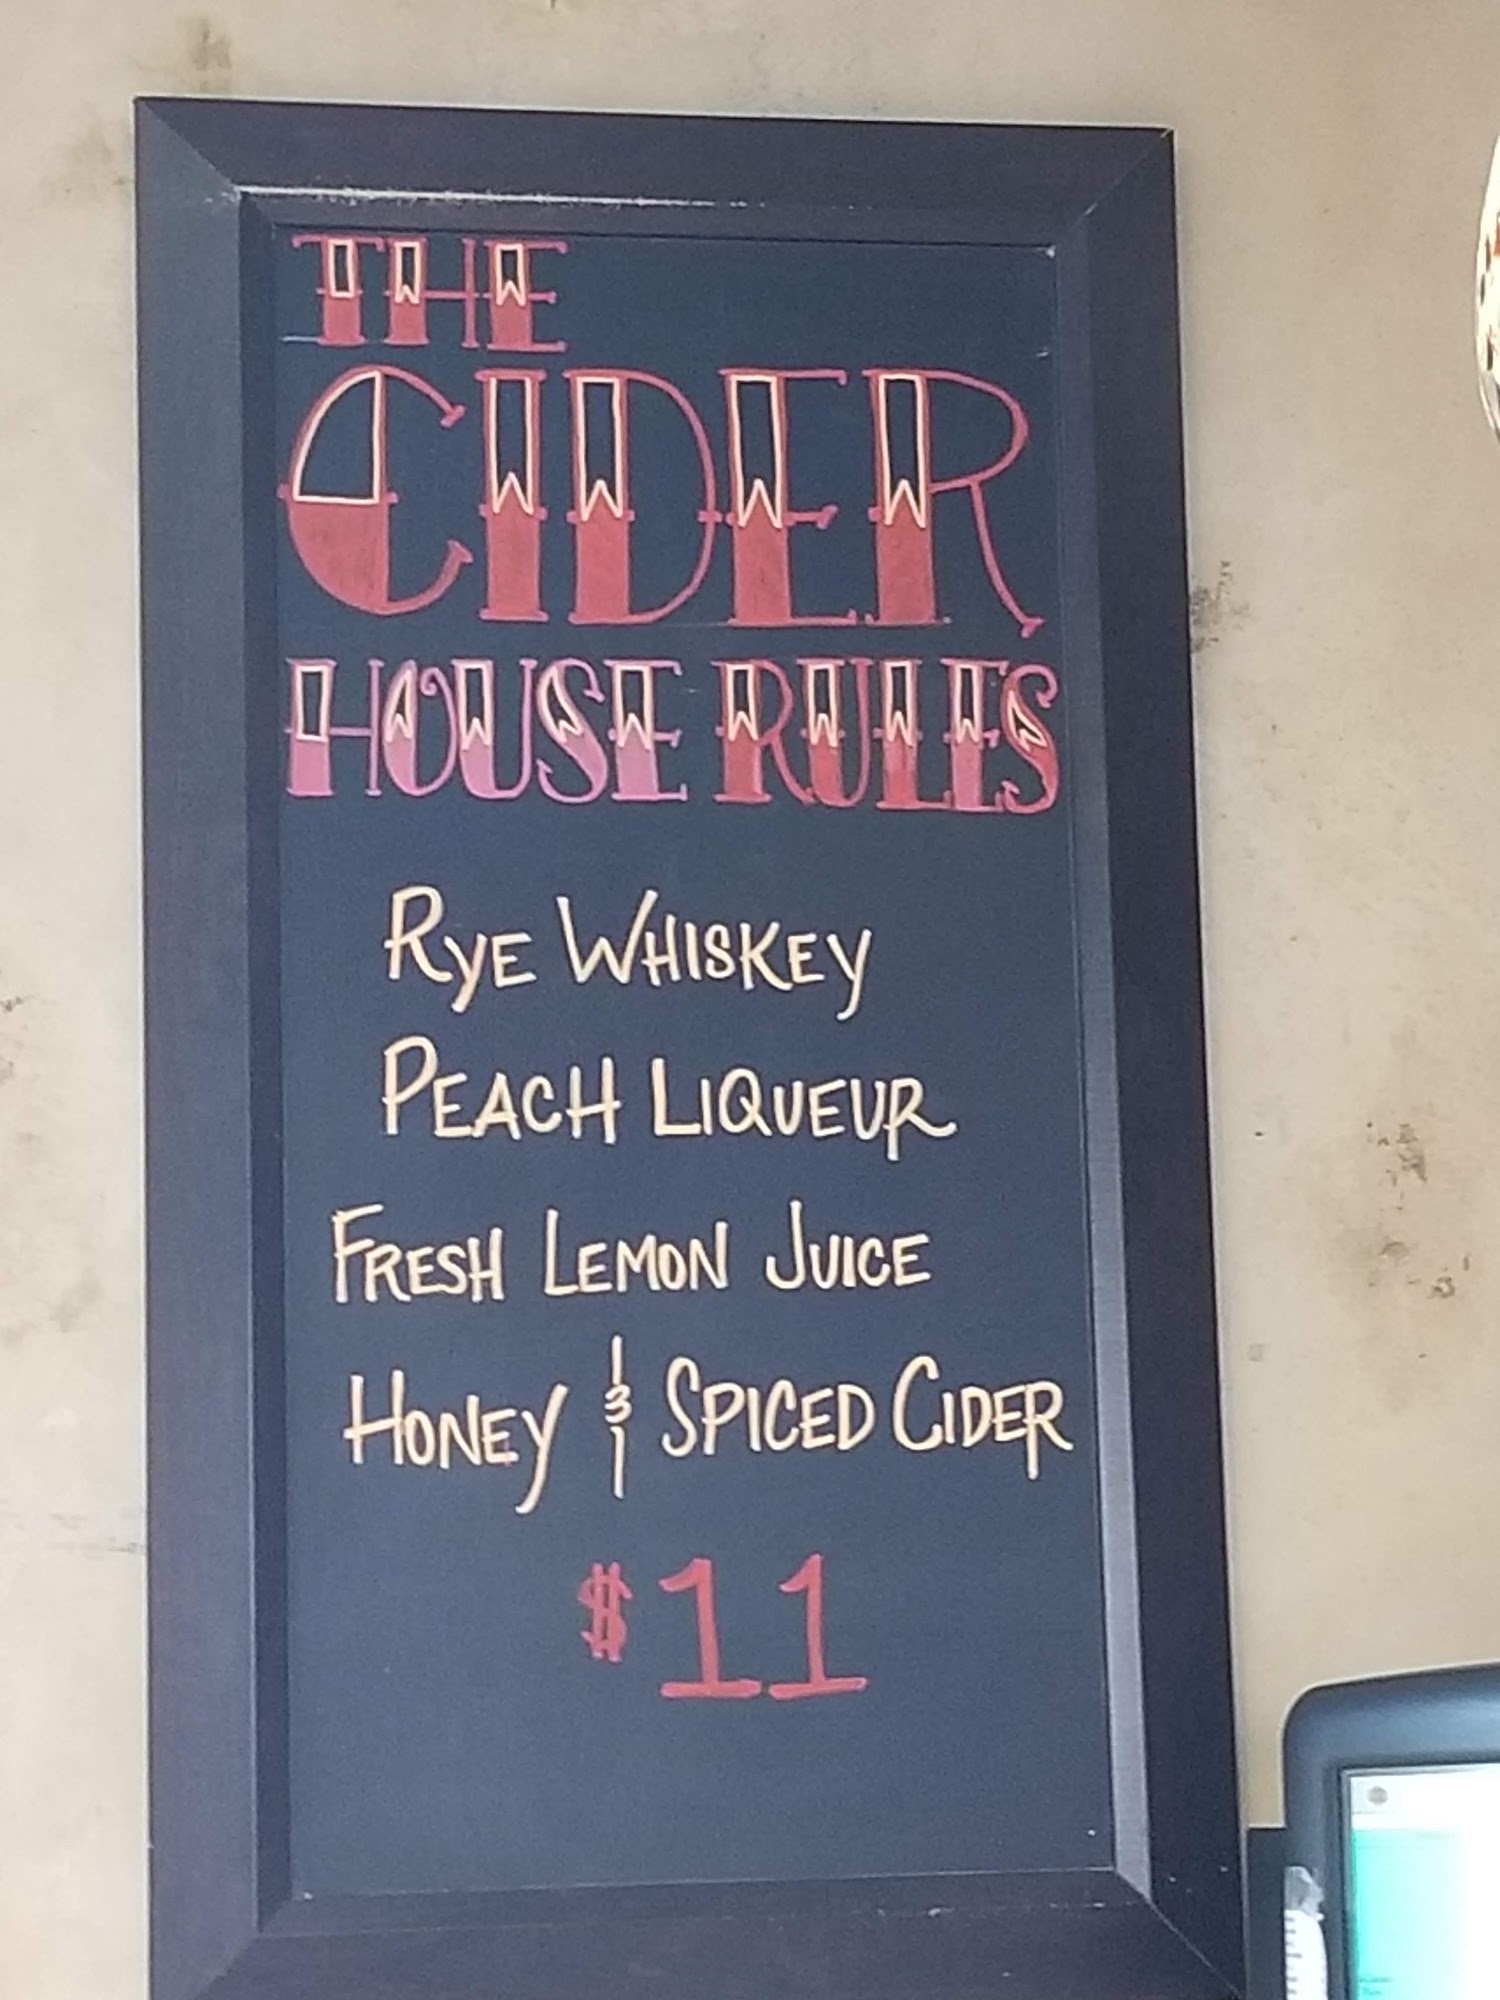 THE
CIDER
HOUSE RULES
RYE WHISKEY
PEACH LIQUEUR
FRESH LEMON JUICE
HONEY & SPICED CIDER
$11